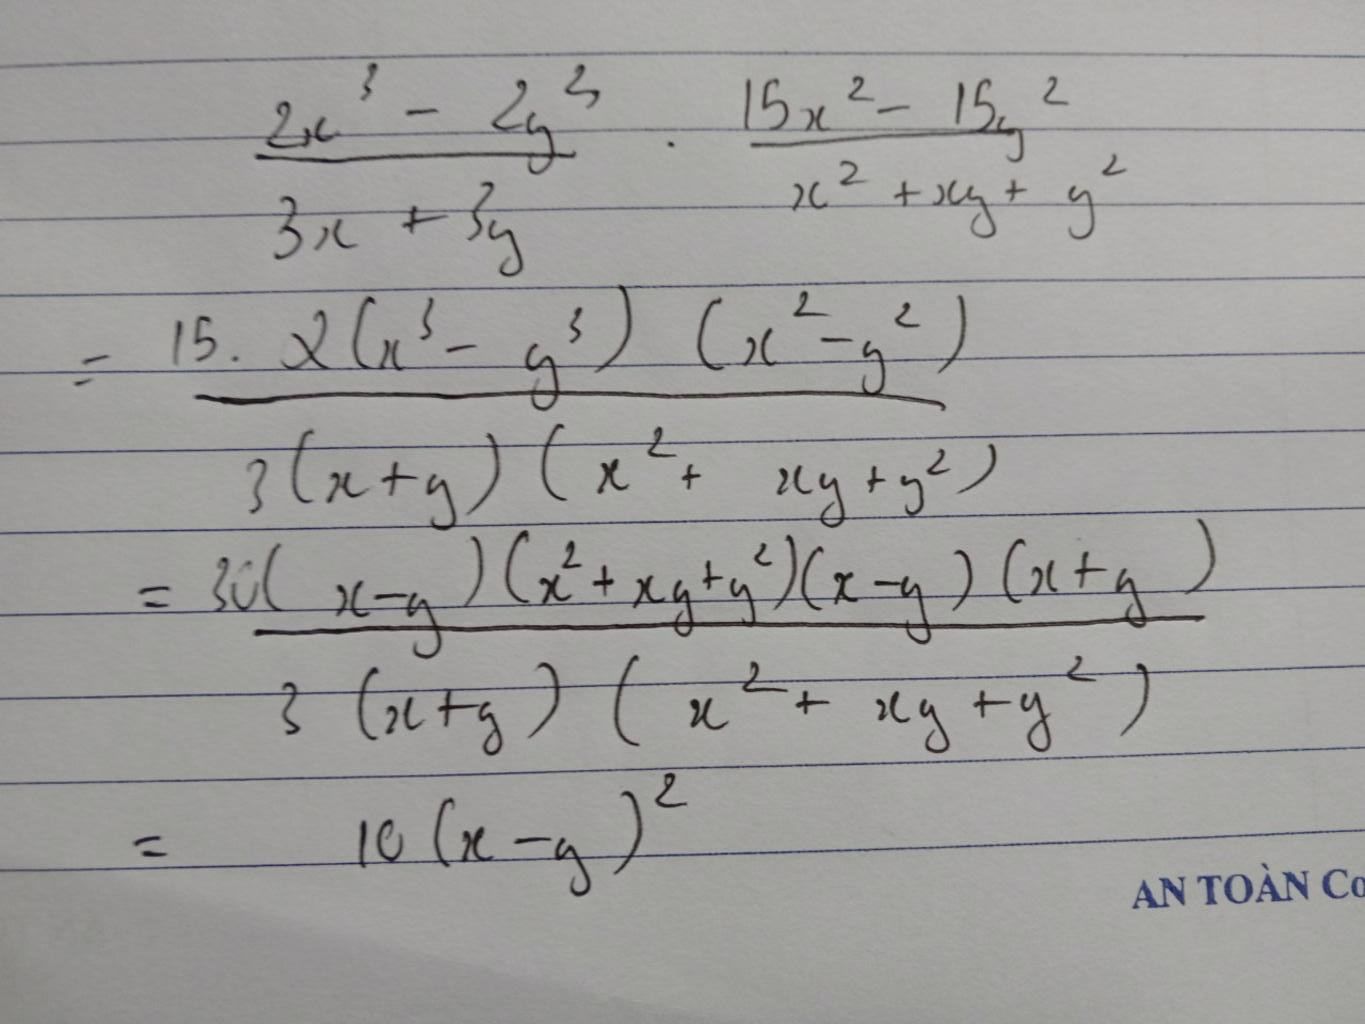 2x³ - 2y³ . 15x² - 15y²
3x + 3y x² + xy + y²
= 15. 2(x³ - y³) (x² - y²)
3(x+y) (x² + xy + y²)
= 30(x-y)(x² + xy + y²)(x-y)(x+y)
3 (x+y) (x² + xy + y²)
= 10(x-y)²
AN TOÀN Co